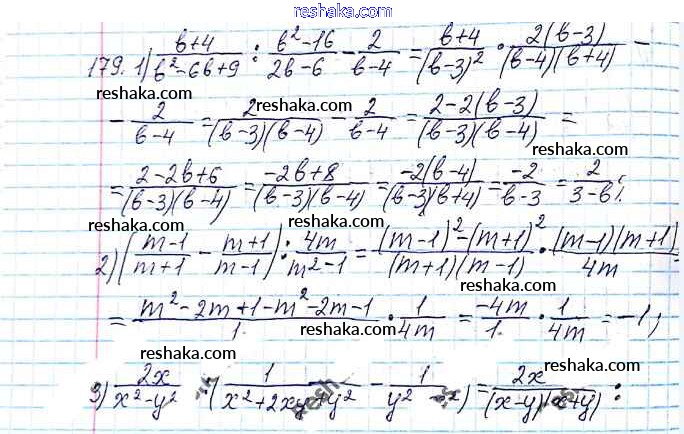 reshaka.com
179. 1) (b+4)/(b²-6b+9) : (b²-16)/(2b-6) - 2/(b-4) = (b+4)/(b-3)² · 2(b-3)/((b-4)(b+4)) -
reshaka.com reshaka.com
- 2/(b-4) = 2/((b-3)(b-4)) - 2/(b-4) = (2-2(b-3))/((b-3)(b-4)) =
reshaka.com reshaka.com
= (2-2b+6)/((b-3)(b-4)) = (-2b+8)/((b-3)(b-4)) = (-2(b-4))/((b-3)(b+4)) = -2/(b-3) = 2/(3-b);
reshaka.com reshaka.com
2) ((m-1)/(m+1) - (m+1)/(m-1)) : 4m/(m²-1) = ((m-1)²-(m+1)²)/((m+1)(m-1)) · ((m-1)(m+1))/4m =
reshaka.com reshaka.com
= (m²-2m+1-m²-2m-1)/1 · 1/4m = -4m/1 · 1/4m = -1;
reshaka.com reshaka.com
3) 2x/(x²-y²) : (1/(x²+2xy+y²) - 1/(y²-x²)) = 2x/((x-y)(x+y)) :